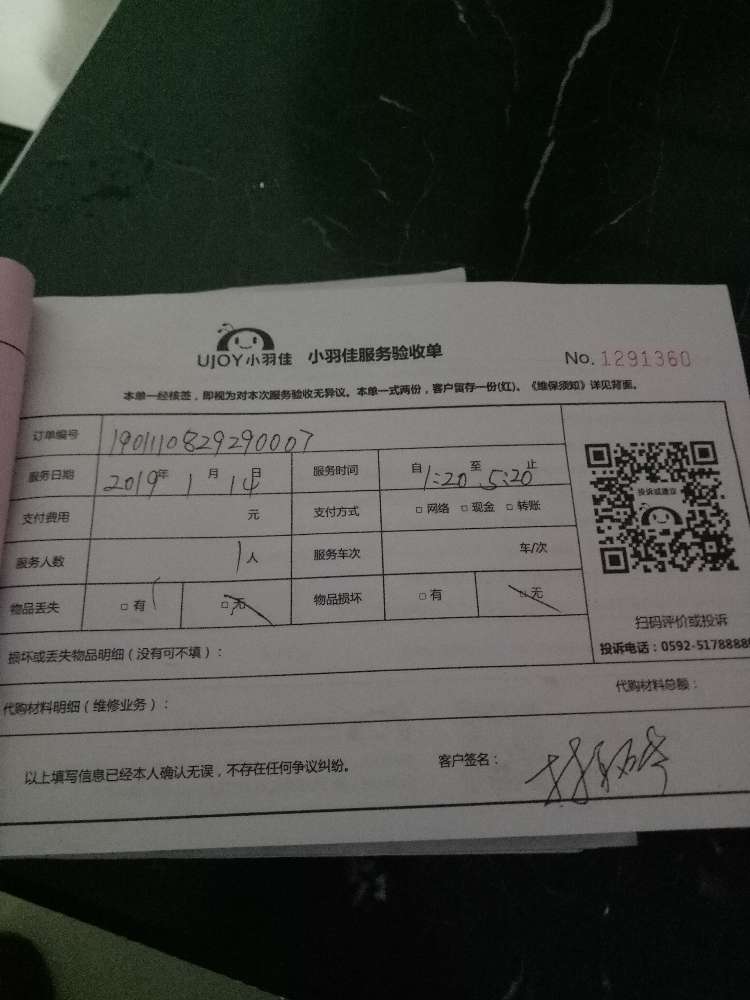 UJOY小羽佳 小羽佳服务验收单 No. 1291360
本单一经核签，即视为对本次服务验收无异议。本单一式两份，客户留存一份(红)。《维保须知》详见背面。
订单编号 1901110829290007
服务日期 2019年 1月 14日 服务时间 自1:20至5:20止
支付费用 元 支付方式 □ 网络 □ 现金 □ 转账
服务人数 1人 服务车次 车/次
物品丢失 □ 有 □ 无 物品损坏 □ 有 □ 无
投诉或建议
扫码评价或投诉
投诉电话：0592-5178888
损坏或丢失物品明细（没有可不填）：
代购材料明细（维修业务）： 代购材料总额：
以上填写信息已经本人确认无误，不存在任何争议纠纷。 客户签名：